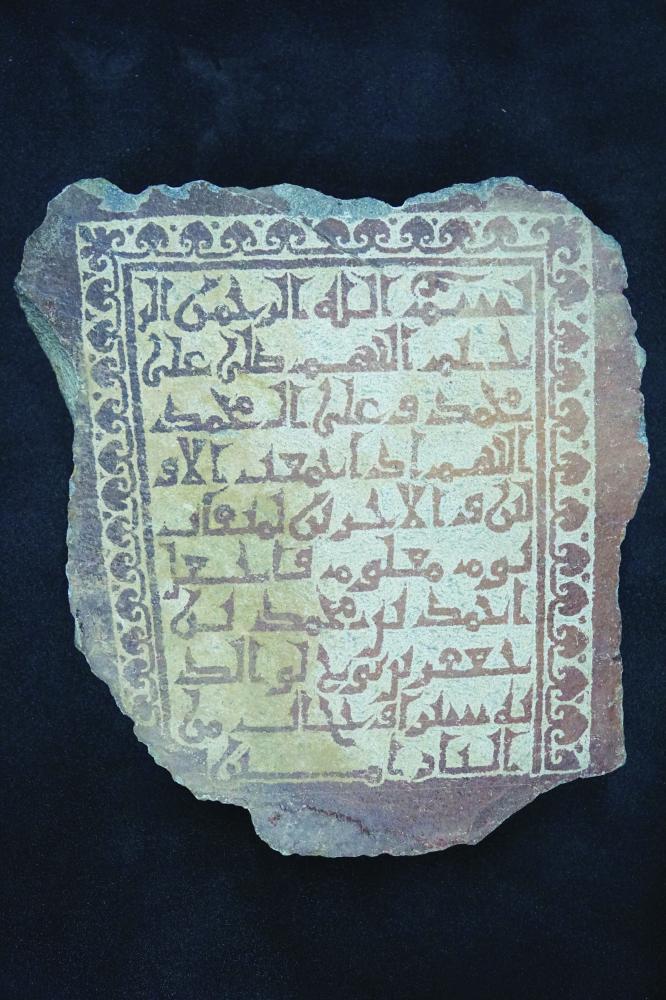 بسم الله الرحمن الر
حيم اللهم صلى على
محمد وعلى ال محمد
اللهم اذا جمعت الاو
لين والاخرين لميقات
يوم معلوم فاجعل
احمد بن محمد بن
جعفر بن لوالد
يه سترا وحجاب من
النار امين